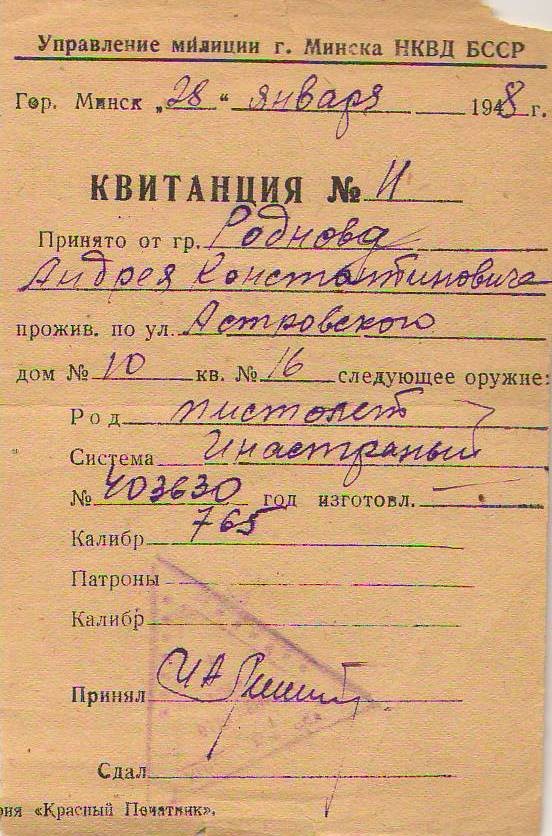 Управление милиции г. Минска НКВД БССР
Гор. Минск „28“ января 1948 г.
КВИТАНЦИЯ № 11
Принято от гр. Роднова
Андрея Константиновича
прожив. по ул. Астровского
дом № 10 кв. № 16 следующее оружие:
Род пистолет
Система Инастраный
№ 403630 год изготовл. —
Калибр 765
Патроны
Калибр
Принял
Сдал
рия «Красный Печатник».